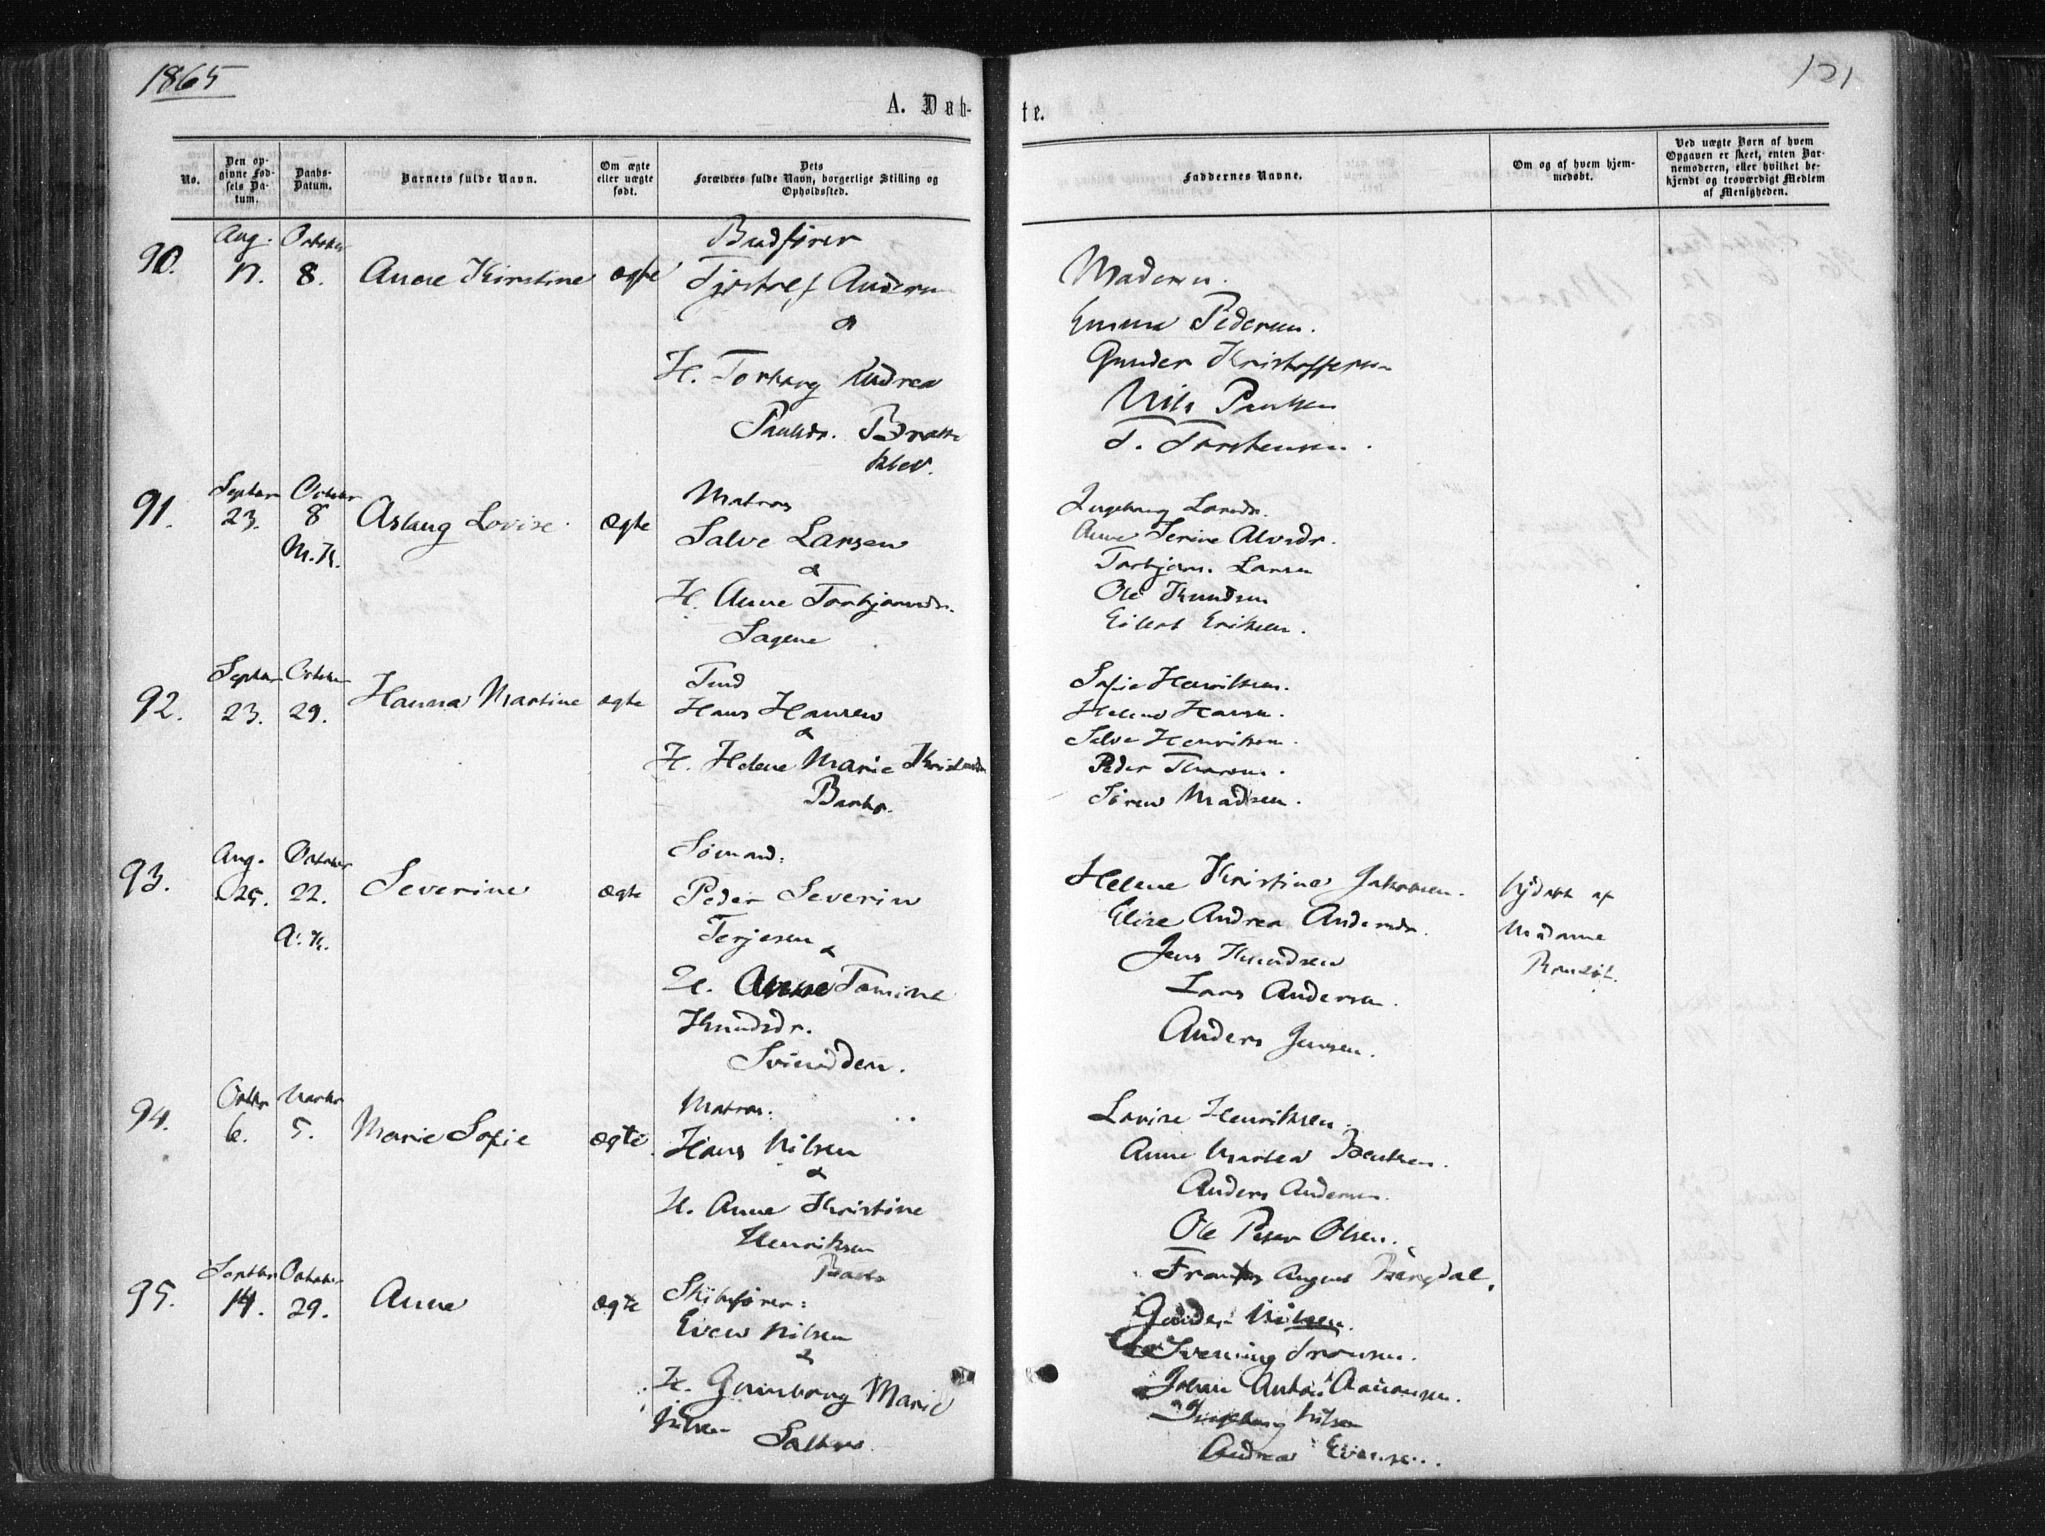 1865
121
A. Døb-
te.
No.
Den op-
givne Fød-
sels Da-
tum.
Daabs-
Datum.
Barnets fulde Navn.
Om ægte
eller uægte
født.
Dets
Forældres fulde Navn, borgerlige Stilling og
Opholdssted.
Faddernes Navne.
Om og af hvem hjem-
medøbt.
Ved uægte Børn af hvem
Opgaven er skeet, enten Bar-
nemoderen, eller hvilket be-
kjendt og troværdigt Medlem
af Menigheden.
90.
Aug.
October
8.
Anne Kirstine
ægte
H. Torborg Andrea
Paulsdr.
Moderen.
Emma Pedersen.
Gunder Kristoffersen
Nils Paulsen
T. Torstensen.
91.
Septbr
23.
October
8
M.K.
Aslaug Lovise
ægte
Matros
Salve Larsen
&
H. Anne Torbjørnsdr.
Sagene
Ingeborg Larsdr.
Anne Serine Alvsdr.
Torbjørn Larsen
Ole Knudsen
Eilert Eriksen.
92.
Septbr
23.
October
29.
Hanna Martine
ægte
Hans Hansen
&
H. Helene Marie
Barbo.
Sofie Henriksen.
Helene Hansen.
Salve Henriksen.
Peder
Søren Madsen.
93.
Aug.
25.
October
22.
A.K.
Severine
ægte
Sømand:
Peder Severin
Terjesen &
H. Anne Tomine
Knudsdr.
Svinodden.
Helene Kristine Jakobsen.
Elise Andrea Andersdr.
Jens Knudsen
Lars Andersen.
Anders Jensen.
hjdøbt af
Madame
94.
Octbr
6.
Novbr
5.
Marie Sofie
ægte.
Matros:
Hans Nilsen
&
H. Anne Kristine
Henriksen
Barbo
Lovise Henriksen.
Anne Martea Bentsen.
Anders Andersen.
Ole Peter Olsen.
Frants August
95.
Septbr
14.
October
29.
Anne
ægte
Skibsfører:
Even Nilsen
&
H. Gunborg Marie
Nilsen
Gunder Nilsen.
Johan Anton
Ingeborg Nilsen
Andrea Evensen.